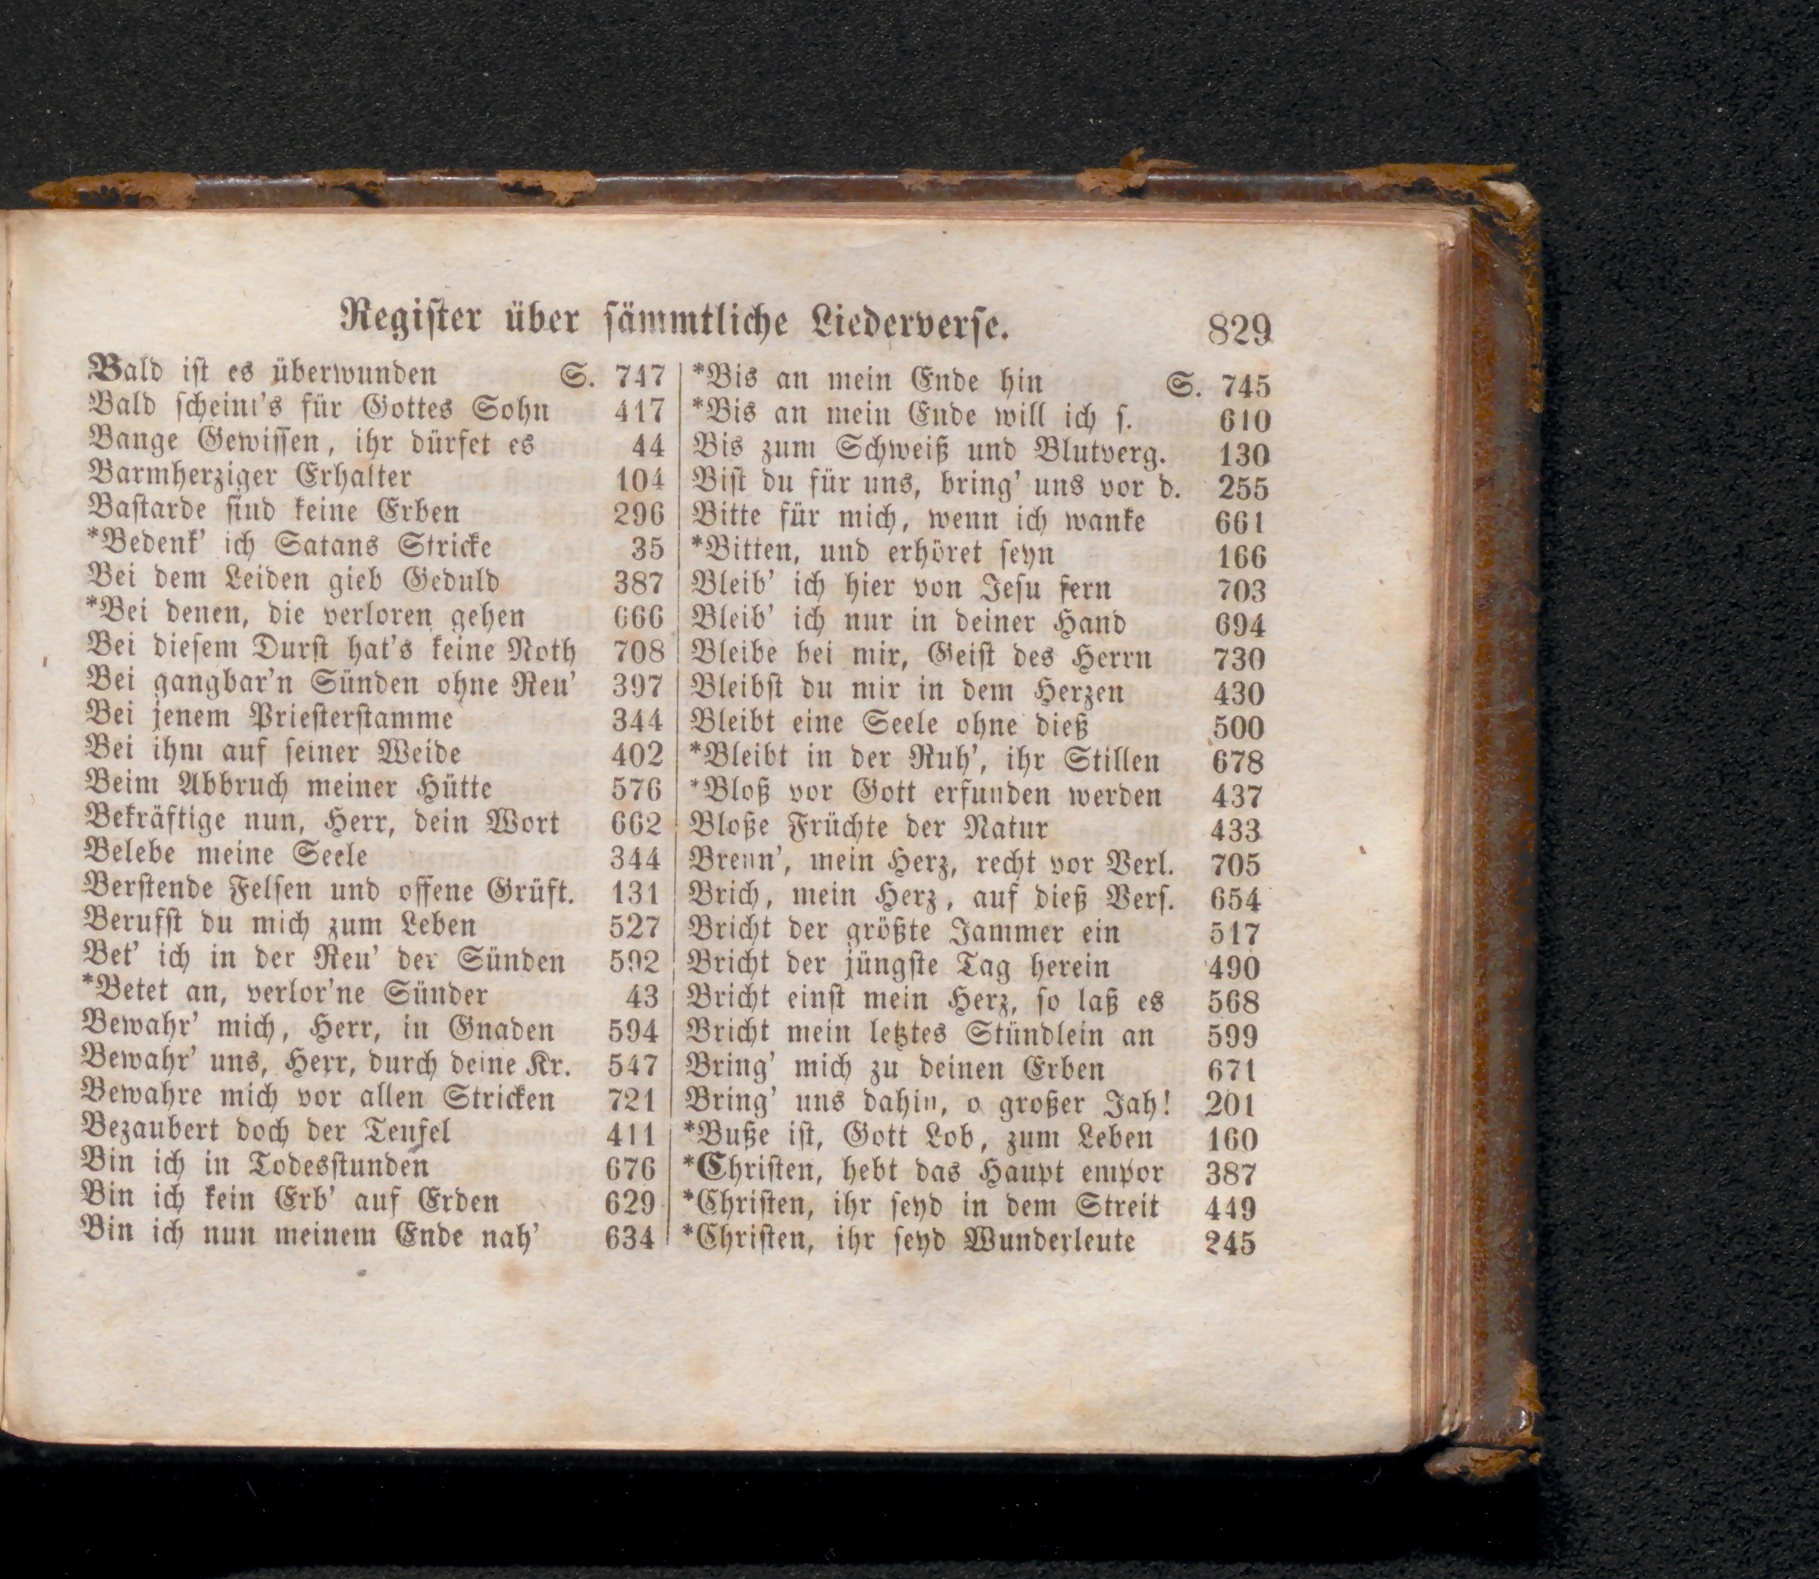 Register über sämmtliche Liederverse. 829
Bald ist es überwunden S. 747
Bald scheint's für Gottes Sohn 417
Bange Gewissen, ihr dürfet es 44
Barmherziger Erhalter 104
Bastarde sind keine Erben 296
*Bedenk' ich Satans Stricke 35
Bei dem Leiden gieb Geduld 387
*Bei denen, die verloren gehen 666
Bei diesem Durst hat's keine Noth 708
Bei gangbar'n Sünden ohne Reu' 397
Bei jenem Priesterstamme 344
Bei ihm auf seiner Weide 402
Beim Abbruch meiner Hütte 576
Bekräftige nun, Herr, dein Wort 662
Belebe meine Seele 344
Berstende Felsen und offene Grüft. 131
Berufst du mich zum Leben 527
Bet' ich in der Reu' der Sünden 592
*Betet an, verlor'ne Sünder 43
Bewahr' mich, Herr, in Gnaden 594
Bewahr' uns, Herr, durch deine Kr. 547
Bewahre mich vor allen Stricken 721
Bezaubert doch der Teufel 411
Bin ich in Todesstunden 676
Bin ich kein Erb' auf Erden 629
Bin ich nun meinem Ende nah' 634
*Bis an mein Ende hin S. 745
*Bis an mein Ende will ich s. 610
Bis zum Schweiß und Blutverg. 130
Bist du für uns, bring' uns vor d. 255
Bitte für mich, wenn ich wanke 661
*Bitten, und erhöret seyn 166
Bleib' ich hier von Jesu fern 703
Bleib' ich nur in deiner Hand 694
Bleibe bei mir, Geist des Herrn 730
Bleibst du mir in dem Herzen 430
Bleibt eine Seele ohne dieß 500
*Bleibt in der Ruh', ihr Stillen 678
*Bloß vor Gott erfunden werden 437
Bloße Früchte der Natur 433
Brenn', mein Herz, recht vor Verl. 705
Brich, mein Herz, auf dieß Vers. 654
Bricht der größte Jammer ein 517
Bricht der jüngste Tag herein 490
Bricht einst mein Herz, so laß es 568
Bricht mein letztes Stündlein an 599
Bring' mich zu deinen Erben 671
Bring' uns dahin, o großer Jah! 201
*Buße ist, Gott Lob, zum Leben 160
*Christen, hebt das Haupt empor 387
*Christen, ihr seyd in dem Streit 449
*Christen, ihr seyd Wunderleute 245